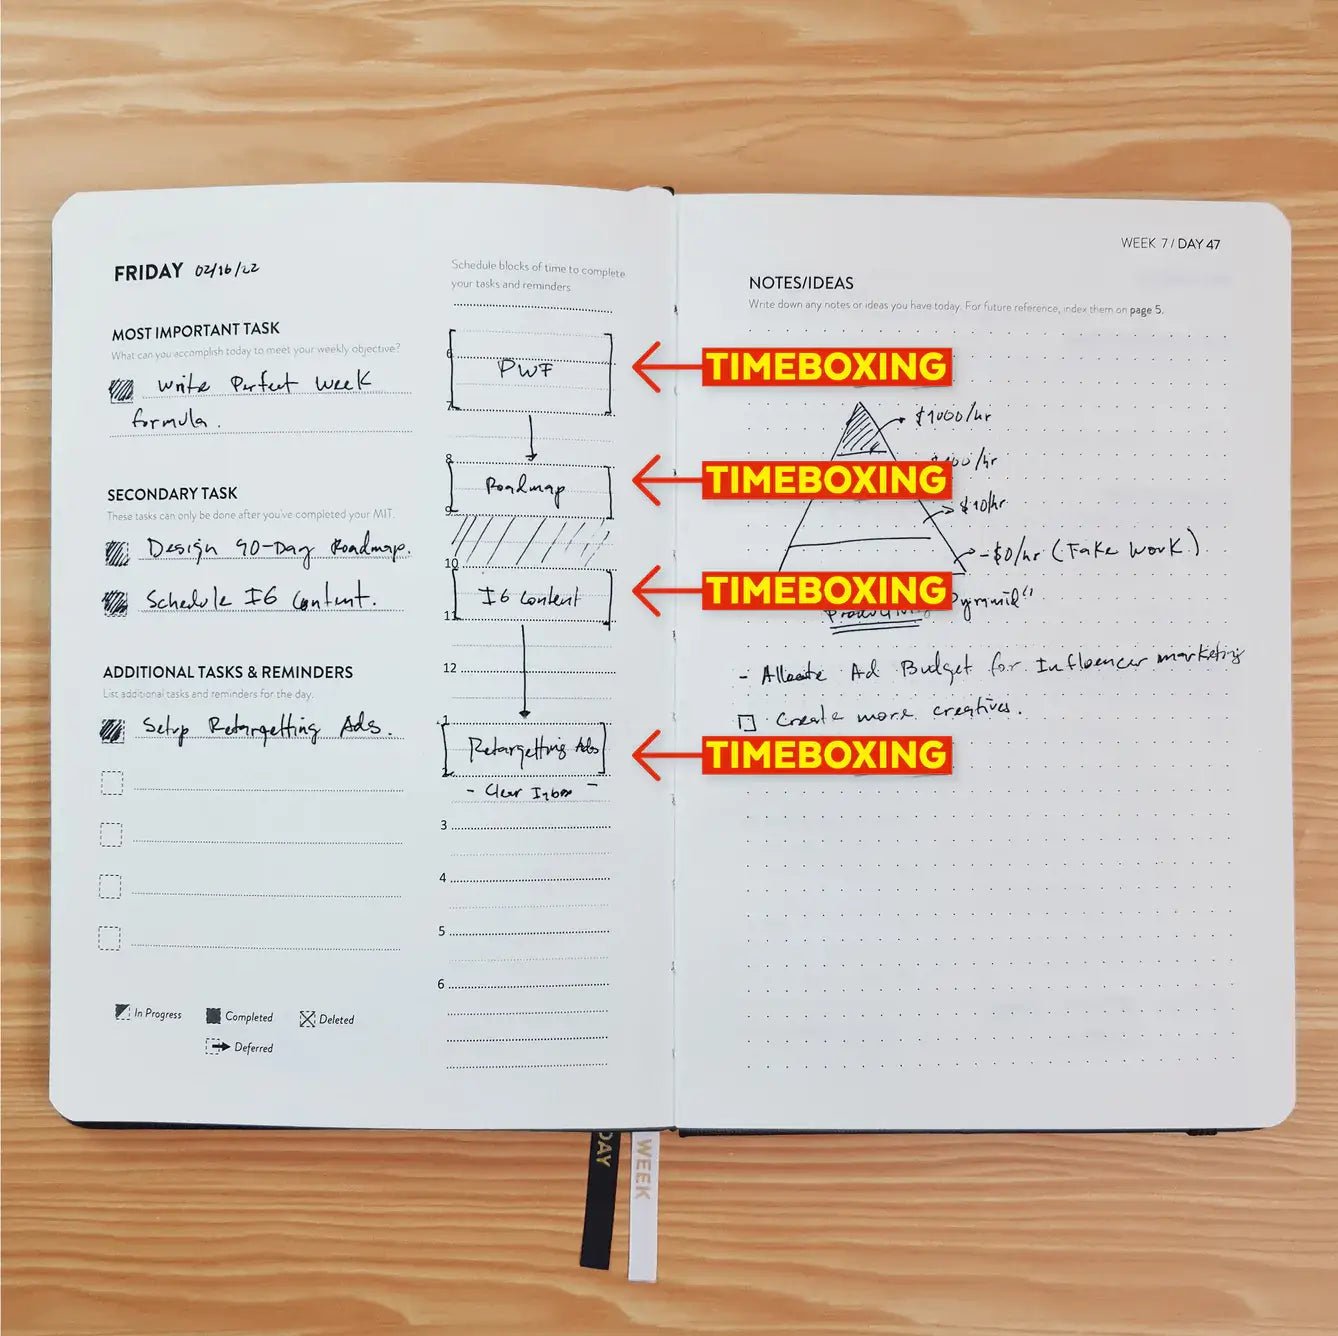 FRIDAY 02/16/22
MOST IMPORTANT TASK
What can you accomplish today to meet your weekly objective?
Write Perfect Week
formula.
SECONDARY TASK
These tasks can only be done after you've completed your MIT.
Design 90-Day Roadmap.
Schedule IG Content.
ADDITIONAL TASKS & REMINDERS
List additional tasks and reminders for the day.
Setup Retargetting Ads.
In Progress
Completed
Deleted
Deferred
Schedule blocks of time to complete
your tasks and reminders
6
PWF
7
8
Roadmap
9
10
IG Content
11
12
1
Retargetting Ads
2
- Clear Inbox -
3
4
5
6
TIMEBOXING
TIMEBOXING
TIMEBOXING
TIMEBOXING
WEEK 7 / DAY 47
NOTES/IDEAS
Write down any notes or ideas you have today. For future reference, index them on page 5.
$1000/hr
/hr
$10/hr
-$0/hr (Fake Work)
Productivity Pyramid"
- Allocate Ad Budget for Influencer marketing
Create more creatives.
DAY
WEEK